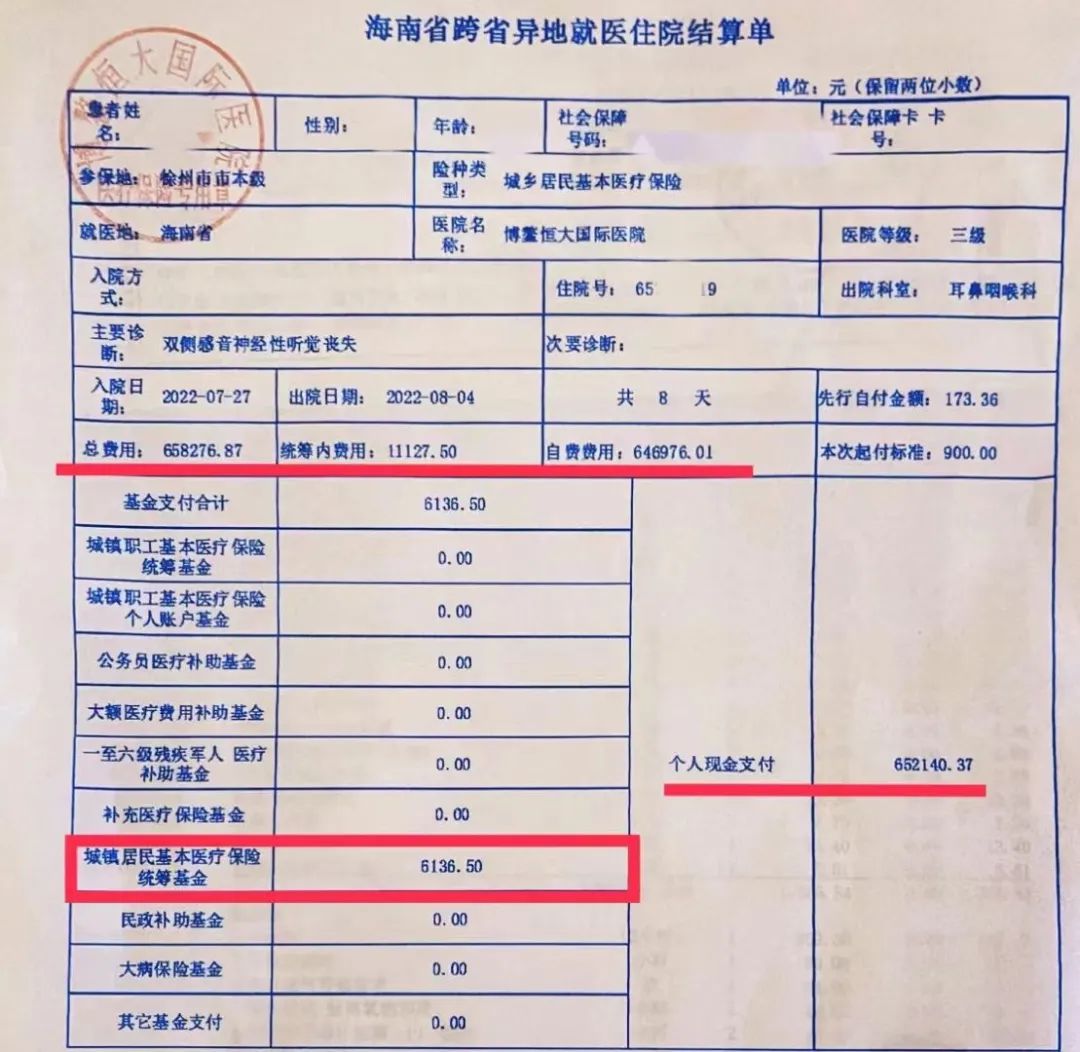 海南省跨省异地就医住院结算单
单位：元（保留两位小数）
恒大国际医院
医疗保险专用章
患者姓名：
性别：
年龄：
社会保障号码：
社会保障卡 卡号：
参保地： 徐州市市本级
险种类型： 城乡居民基本医疗保险
就医地： 海南省
医院名称： 博鳌恒大国际医院
医院等级： 三级
入院方式：
住院号： 65 19
出院科室： 耳鼻咽喉科
主要诊断： 双侧感音神经性听觉丧失
次要诊断：
入院日期： 2022-07-27
出院日期： 2022-08-04
共 8 天
先行自付金额：173.36
总费用： 658276.87
统筹内费用：11127.50
自费费用：646976.01
本次起付标准：900.00
基金支付合计 6136.50
城镇职工基本医疗保险统筹基金 0.00
城镇职工基本医疗保险个人账户基金 0.00
公务员医疗补助基金 0.00
大额医疗费用补助基金 0.00
一至六级残疾军人 医疗补助基金 0.00
个人现金支付 652140.37
补充医疗保险基金 0.00
城镇居民基本医疗保险统筹基金 6136.50
民政补助基金 0.00
大病保险基金 0.00
其它基金支付 0.00